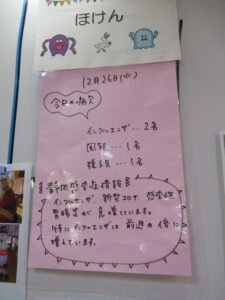 ほけん
12月26日(木)
今日の病欠
インフルエンザ…2名
風邪…1名
静岡感染症情報
インフルエンザ、新型コロナ、感染性
胃腸炎が急増しています。
特にインフルエンザは前週の倍に
増えています。